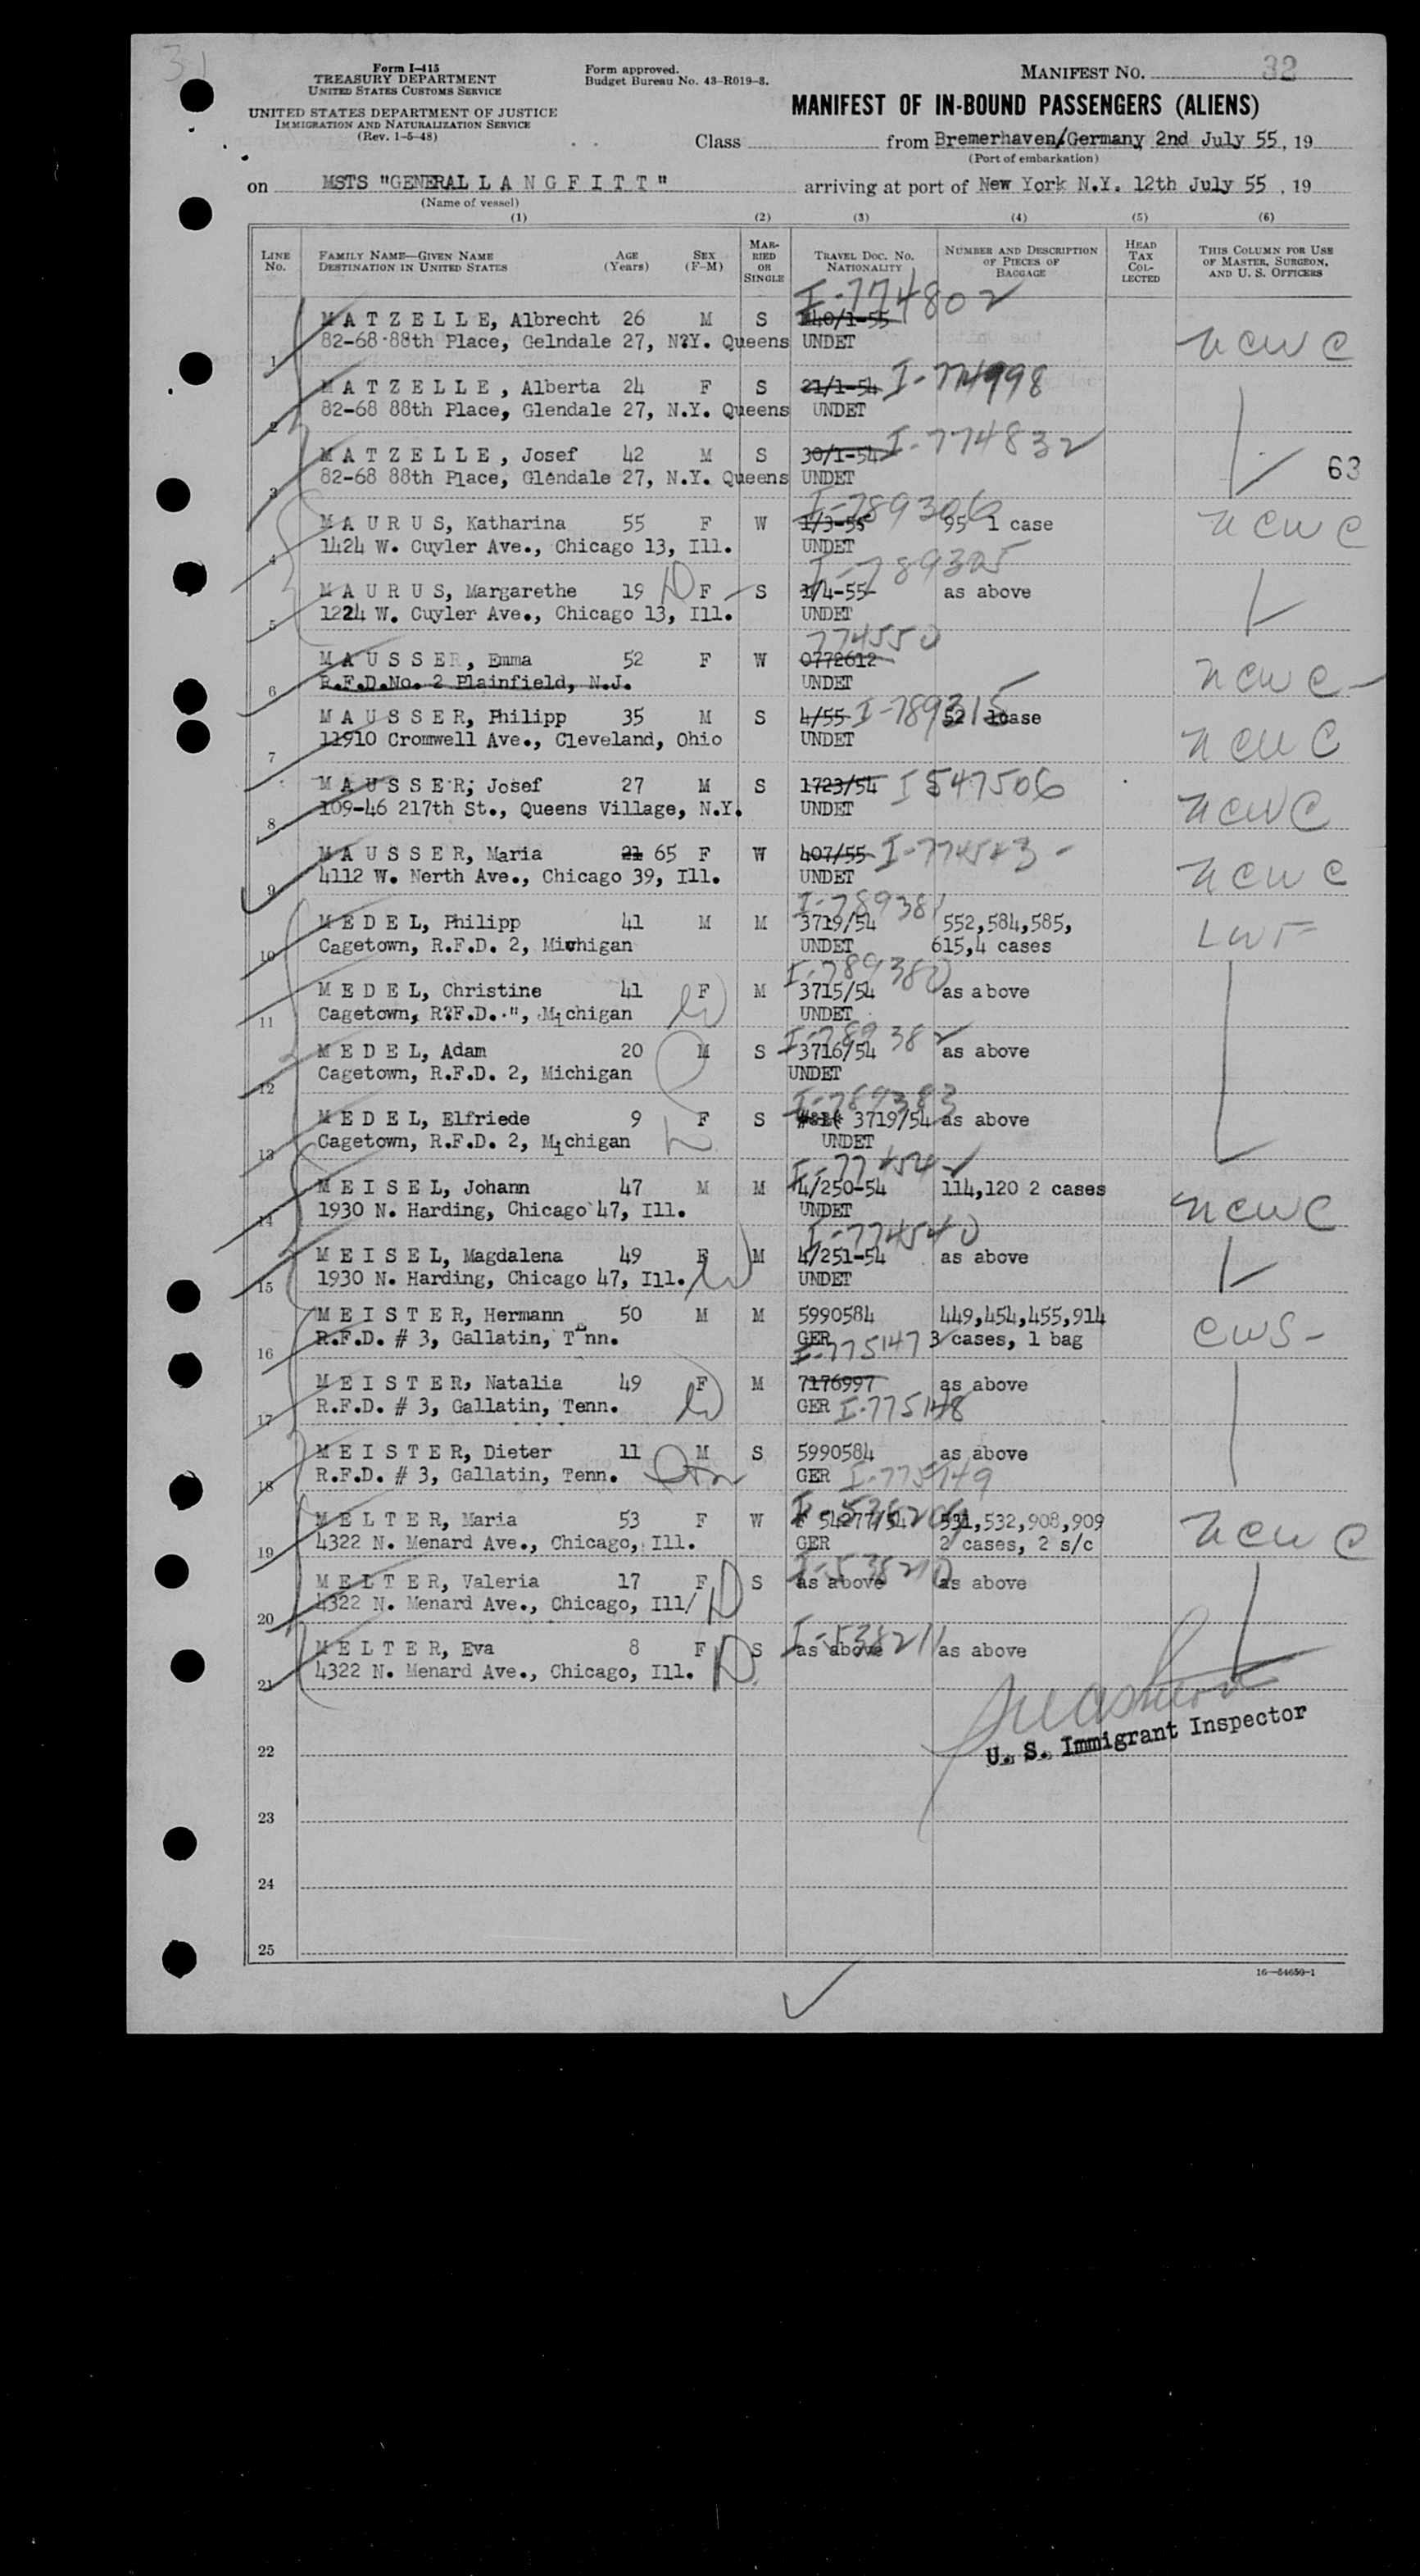 31
Form I-415
TREASURY DEPARTMENT
UNITED STATES CUSTOMS SERVICE
UNITED STATES DEPARTMENT OF JUSTICE
IMMIGRATION AND NATURALIZATION SERVICE
(Rev. 1-5-48)
Form approved.
Budget Bureau No. 43-R019-3.
MANIFEST NO. 32
MANIFEST OF IN-BOUND PASSENGERS (ALIENS)
Class from Bremerhaven/Germany 2nd July 55, 19
(Port of embarkation)
on MSTS "GENERAL L A N G F I T T" arriving at port of New York N.Y. 12th July 55 , 19
(Name of vessel)
(1) (2) (3) (4) (5) (6)
LINE No. FAMILY NAME—GIVEN NAME DESTINATION IN UNITED STATES AGE (Years) SEX (F-M) MARRIED OR SINGLE TRAVEL DOC. NO. NATIONALITY NUMBER AND DESCRIPTION OF PIECES OF BAGGAGE HEAD TAX COLLECTED THIS COLUMN FOR USE OF MASTER, SURGEON, AND U. S. OFFICERS
I-774802
M A T Z E L L E, Albrecht 26 M S 140/1-55
1 82-68 88th Place, Gelndale 27, N?Y. Queens UNDET NCWC
M A T Z E L L E , Alberta 24 F S 21/1-54 I-774998
2 82-68 88th Place, Glendale 27, N.Y. Queens UNDET
M A T Z E L L E , Josef 42 M S 30/1-54 I-774832
3 82-68 88th Place, Glendale 27, N.Y. Queens UNDET 63
I-789306
M A U R U S, Katharina 55 F W 1/3-55 95 1 case NCWC
4 1424 W. Cuyler Ave., Chicago 13, Ill. UNDET
I-789305
M A U R U S, Margarethe 19 D F S 1/4-55 as above
5 1224 W. Cuyler Ave., Chicago 13, Ill. UNDET
774550
M A U S S E R, Emma 52 F W 0772612
6 R.F.D.No. 2 Plainfield, N.J. UNDET NCWC
M A U S S E R, Philipp 35 M S 4/55 I-789315 52 1case
7 11910 Cromwell Ave., Cleveland, Ohio UNDET NCWC
M A U S S E R; Josef 27 M S 1723/54 I 547506
8 109-46 217th St., Queens Village, N.Y. UNDET NCWC
M A U S S E R, Maria 21 65 F W 407/55
9 4112 W. Nerth Ave., Chicago 39, Ill. UNDET NCWC
I-789381
M E D E L, Philipp 41 M M 3719/54 552,584,585,
10 Cagetown, R.F.D. 2, Michigan UNDET 615,4 cases LWF
I-789380
M E D E L, Christine 41 F M 3715/54 as above
11 Cagetown, R?F.D.·", Michigan W UNDET
I-789382
M E D E L, Adam 20 M S 3716/54 as above
12 Cagetown, R.F.D. 2, Michigan UNDET
I-789383
M E D E L, Elfriede 9 F S 3719/54 as above
13 Cagetown, R.F.D. 2, Michigan UNDET
M E I S E L, Johann 47 M M 4/250-54 114,120 2 cases
14 1930 N. Harding, Chicago 47, Ill. UNDET NCWC
I-774540
M E I S E L, Magdalena 49 F M 4/251-54 as above
15 1930 N. Harding, Chicago 47, Ill. W UNDET
M E I S T E R, Hermann 50 M M 5990584 449,454,455,914
16 R.F.D. # 3, Gallatin, Tenn. GER 3 cases, 1 bag CWS
I-775147
M E I S T E R, Natalia 49 F M 7176997 as above
17 R.F.D. # 3, Gallatin, Tenn. W GER I-775148
M E I S T E R, Dieter 11 M S 5990584 as above
18 R.F.D. # 3, Gallatin, Tenn. GER I-775149
M E L T E R, Maria 53 F W 54277/54 531,532,908,909
19 4322 N. Menard Ave., Chicago, Ill. GER 2 cases, 2 s/c NCWC
I-538210
M E L T E R, Valeria 17 F D S as above as above
20 4322 N. Menard Ave., Chicago, Ill/
I-538211
M E L T E R, Eva 8 F D S as above as above
21 4322 N. Menard Ave., Chicago, Ill.
U. S. Immigrant Inspector
22
23
24
25
16—54650-1